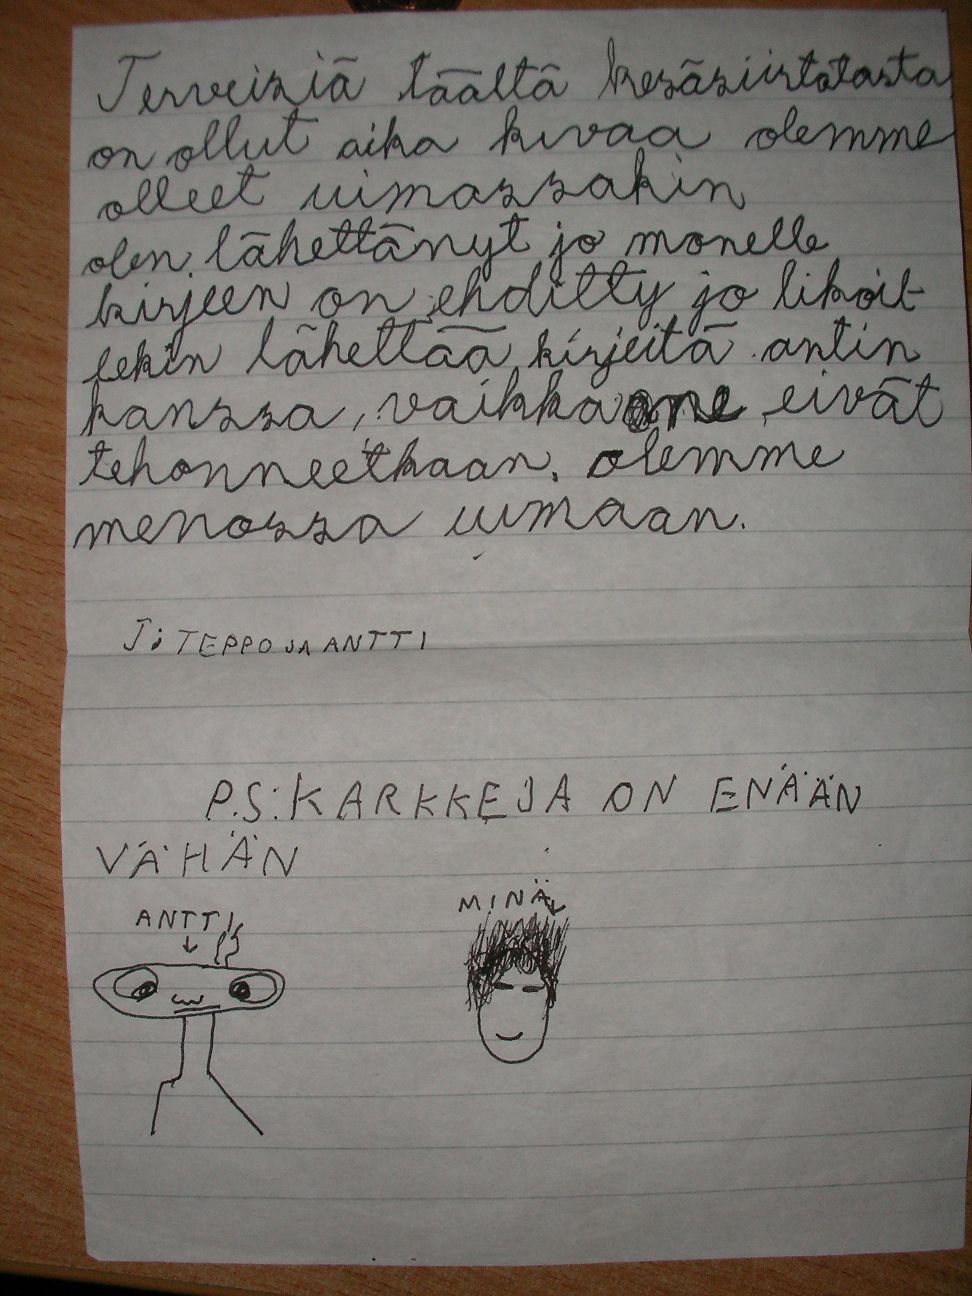 Terveisiä täältä kesäsiirtotasta
on ollut aika kivaa olemme
olleet uimassakin
olen lähettänyt jo monelle
kirjeen on ehditty jo likoit
lekin lähettää kirjeitä antin
kanssa, vaikka ne eivät
tehonneetkaan. olemme
menossa uimaan.
T: TEPPO JA ANTTI
P.S: KARKKEJA ON ENÄÄN
VÄHÄN
ANTTI
MINÄ